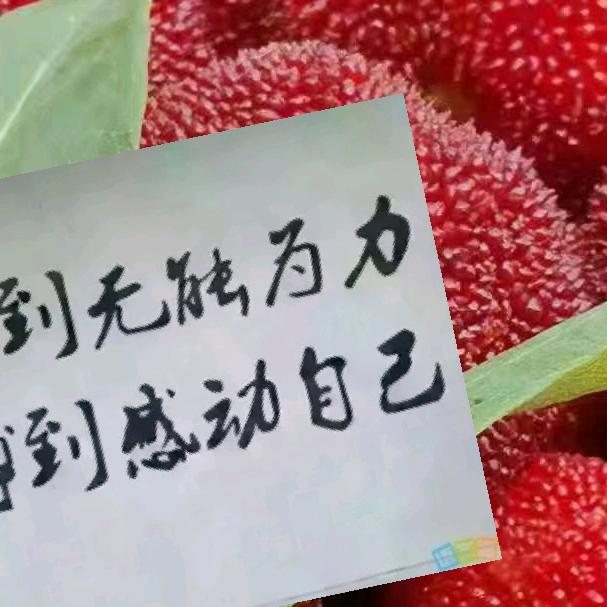 到无能为力
到感动自己